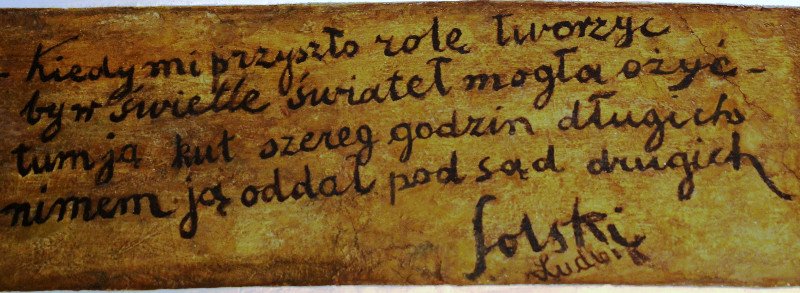 - Kiedy mi przyszło rolę tworzyc
by w świetle świateł mogła ożyć -
tum ją kuł szereg godzin długich
nimem ją oddał pod sąd drugich
Solski
Ludwik